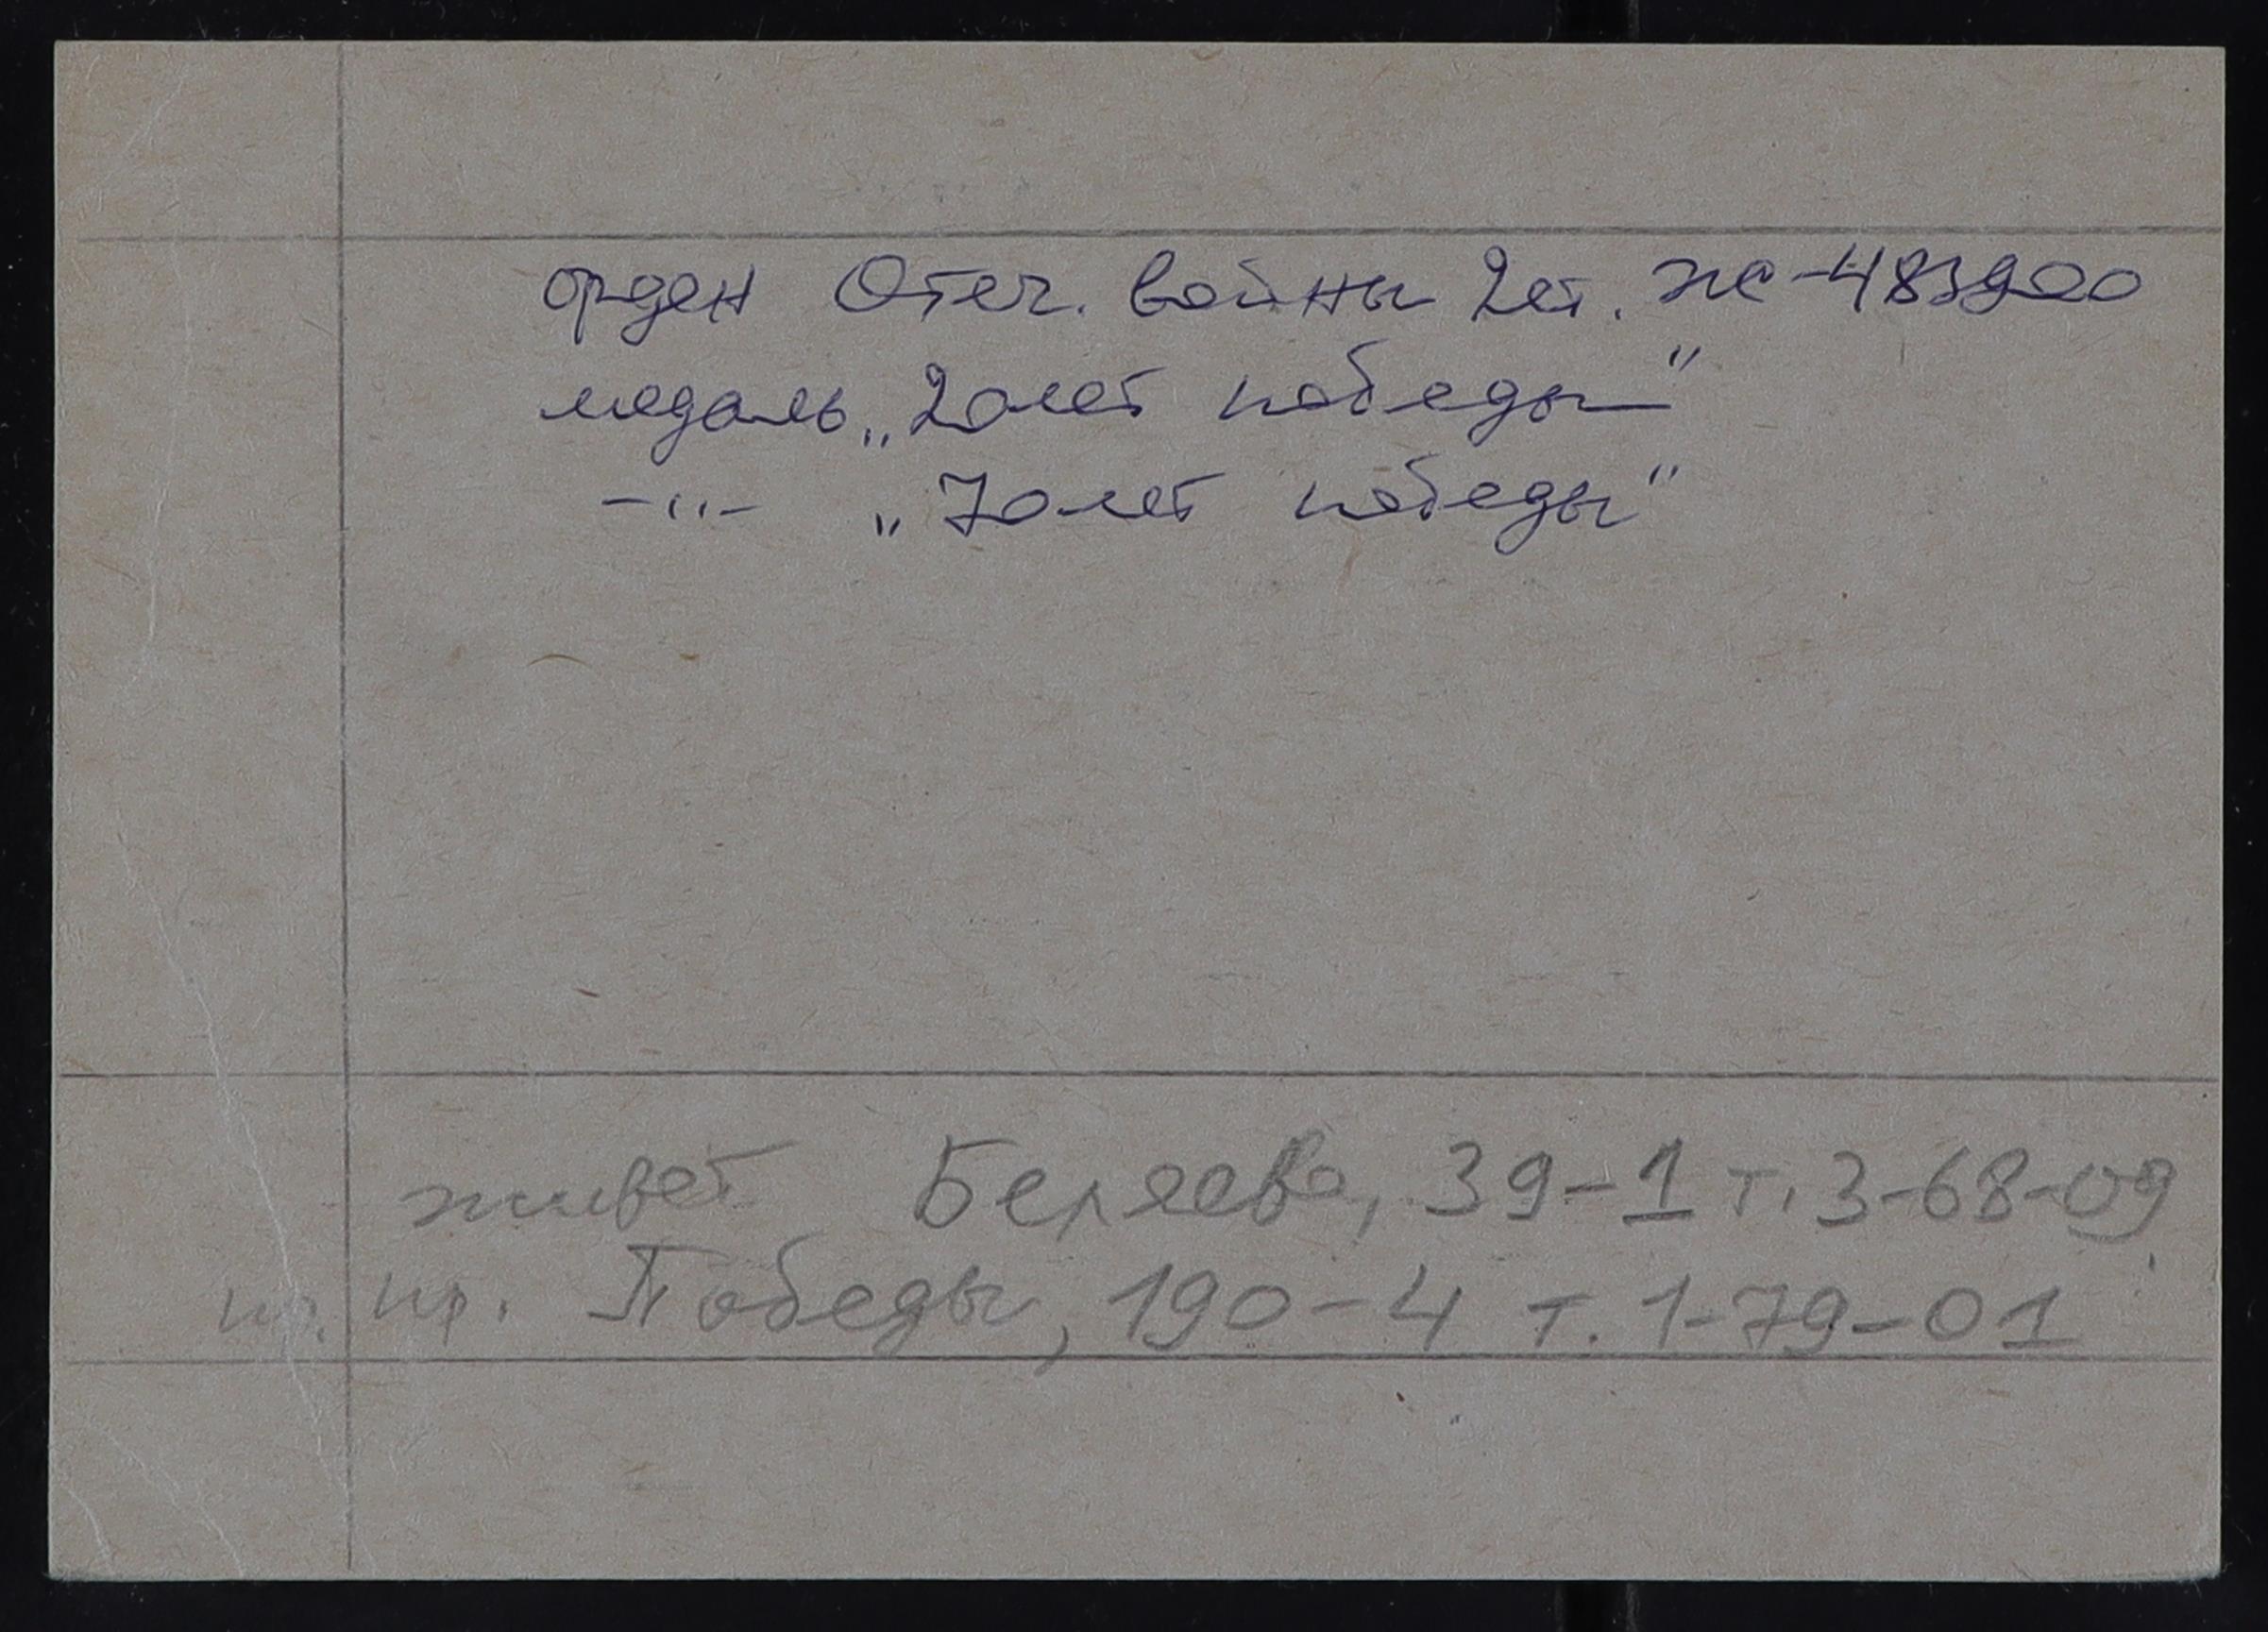 орден Отеч. войны 2 ст. же-483900
медаль „20 лет победы"
-"- „70 лет победы"
живет Беляева, 39-1 т. 3-68-09
пр. пр. Победы, 190-4 т. 1-79-01